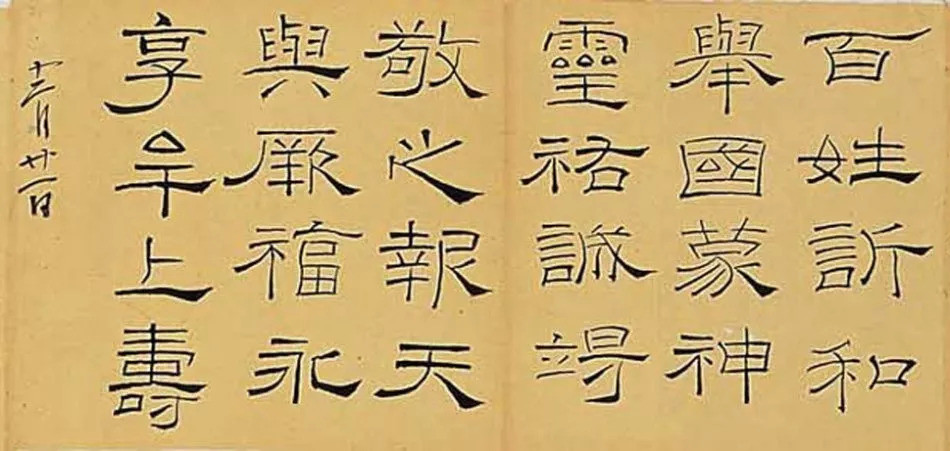 百姓訢和
舉國蒙神
靈祐誠竭
敬之報天
與厥福永
享牟上壽
十二月廿一日